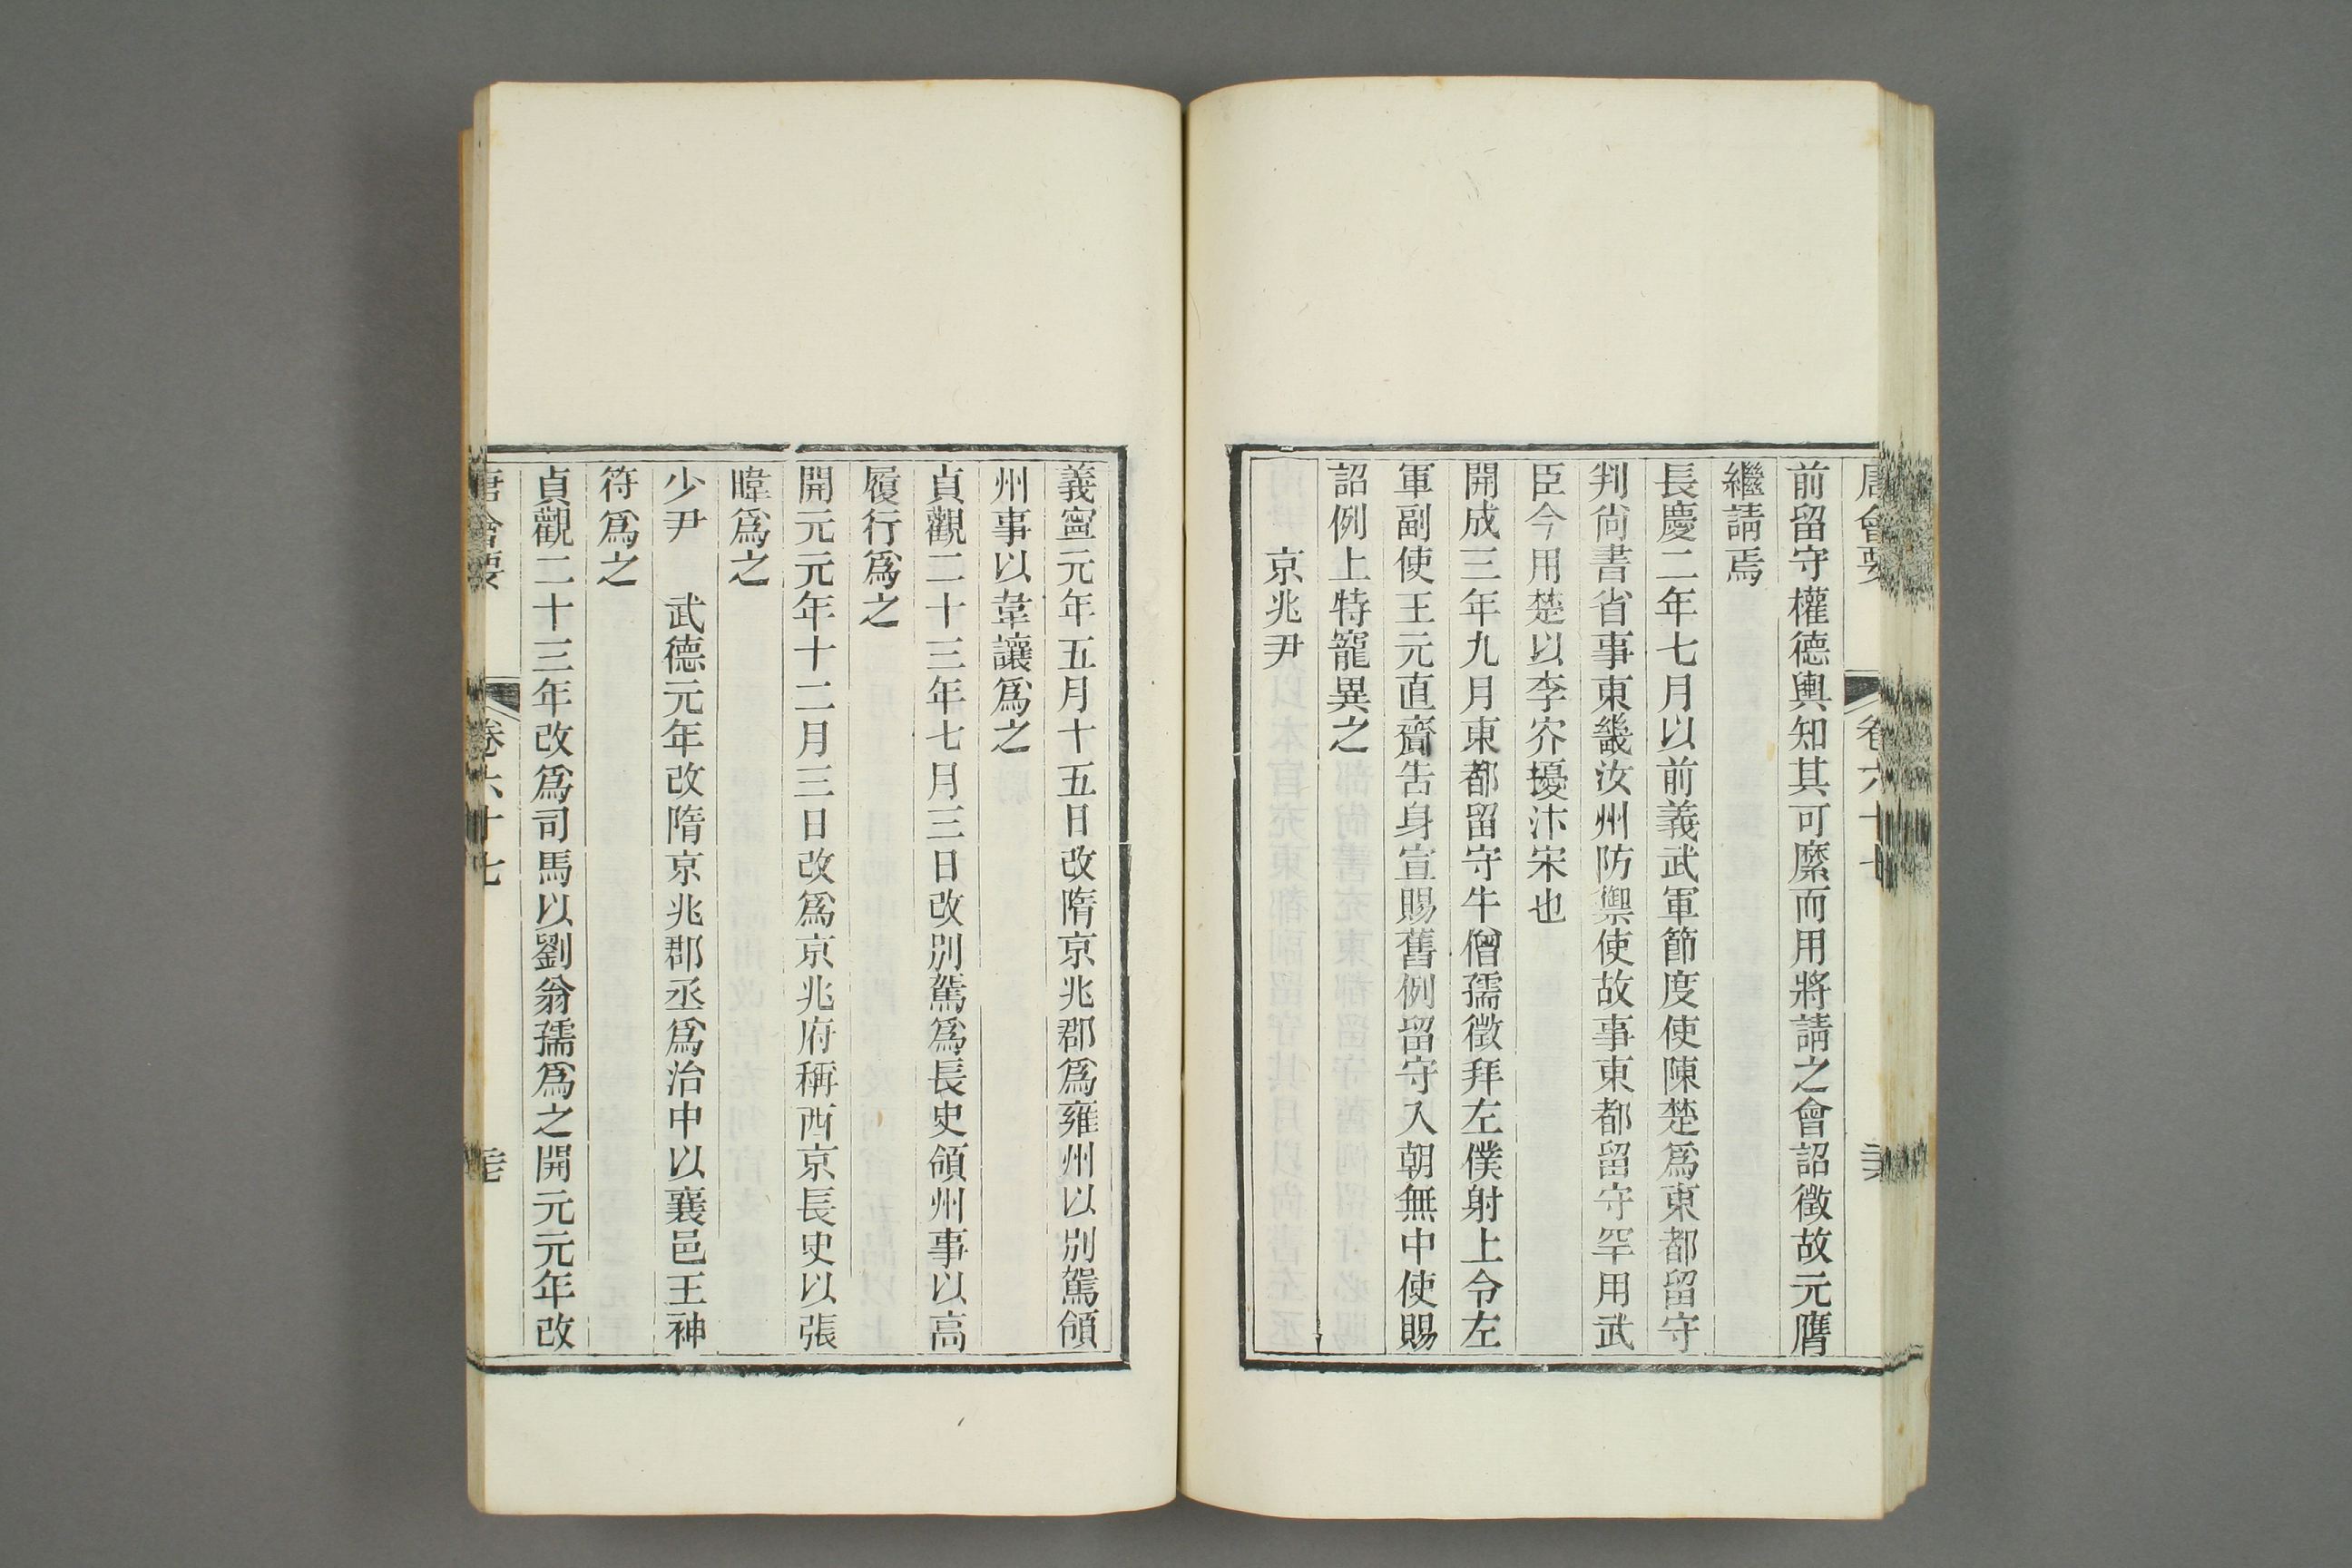 唐會要 卷六十七
前留守權德輿知其可縻而用將請之會詔徵故元膺
繼請焉
長慶二年七月以前義武軍節度使陳楚爲東都留守
判尙書省事東畿汝州防禦使故事東都留守罕用武
臣今用楚以李㝏擾汴宋也
開成三年九月東都留守牛僧孺徵拜左僕射上令左
軍副使王元直齎告身宣賜舊例留守入朝無中使賜
詔例上特寵異之
京兆尹
義寧元年五月十五日改隋京兆郡爲雍州以別駕領
州事以韋讓爲之
貞觀二十三年七月三日改別駕爲長史領州事以高
履行爲之
開元元年十二月三日改爲京兆府稱西京長史以張
暐爲之
少尹 武德元年改隋京兆郡丞爲治中以襄邑王神
符爲之
貞觀二十三年改爲司馬以劉翁孺爲之開元元年改
唐會要 卷六十七